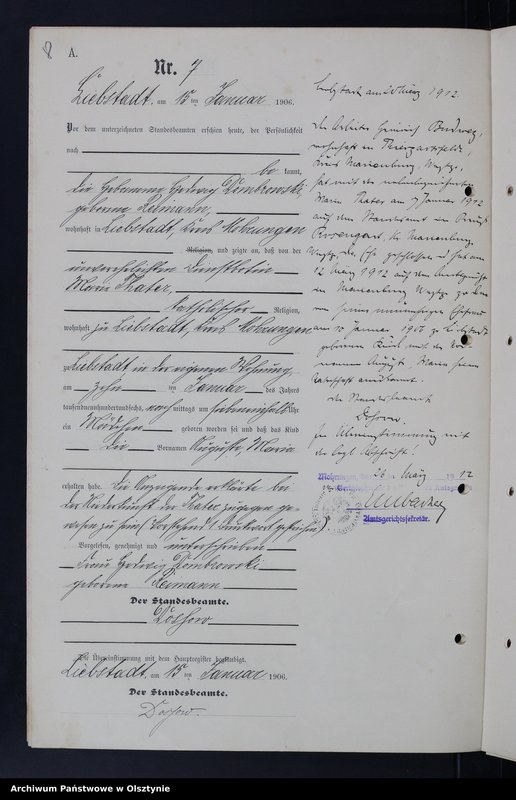 8
A.
Nr. 7
Liebstadt, am 15 ten Januar 1906.
Vor dem unterzeichneten Standesbeamten erschien heute, der Persönlichkeit
nach
be kannt,
die Hebamme Hedwig Dombrowski,
geborene Reimann,
wohnhaft in Liebstadt, Kreis Mohrungen
Religion, und zeigte an, daß von der
unverehelichten Dienstbotin
Maria Thater,
katholischer Religion,
wohnhaft zu Liebstadt, Kreis Mohrungen
zu Liebstadt in der eigenen Wohnung,
am zehn ten Januar des Jahres
tausendneunhundertundsechs, nach mittags um Uhr
ein Mädchen geboren worden sei und daß das Kind
die Vornamen Auguste Maria
erhalten habe. Die Anzeigende erklärte bei
der Niederkunft der Thater zugegen ge-
wesen zu sein.
Vorgelesen, genehmigt und unterschrieben
Frau Hedwig Dombrowski
geborene Reimann
Der Standesbeamte.
Dossow
Die Übereinstimmung mit dem Hauptregister beglaubigt.
Liebstadt, am 15 ten Januar 1906.
Der Standesbeamte.
Dossow.
Liebstadt am 20 März 1912.
Der Arbeiter Heinrich
wohnhaft in
Kreis Marienburg, Westpr.
hat mit der
Maria Thater am 7 Januar 1912
auf dem Standesamt in
Rosengart, Kr. Marienburg
Westpr. die Ehe geschlossen und hat am
12 März 1912 auf dem Amtsgericht
in Marienburg Westpr.
am 10 Januar 1906 zu Liebstadt
geborene Kind mit den Vor-
namen Auguste Maria seine
Vaterschaft anerkannt.
Der Standesbeamte
Dossow.
Für Übereinstimmung mit
Mohrungen, den 26 März 1912
Amtsgerichtssekretär.
Archiwum Państwowe w Olsztynie